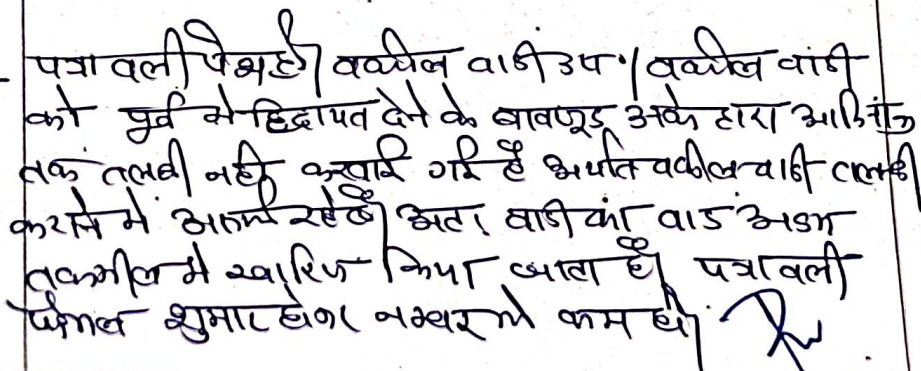 पत्रावली पेश हो। वकील वादी उप.। वकील वादी
को पूर्व में हिदायत देने के बावजूद उनके द्वारा आदिनांक
तक तलबी नहीं करवाई गई है अर्थात वकील वादी तलबी
कराने में असफल रहे हैं। अतः वादी का वाद अदम
तकमील में खारिज किया जाता है। पत्रावली
फैसल शुमार होकर नम्बर से कम हो।